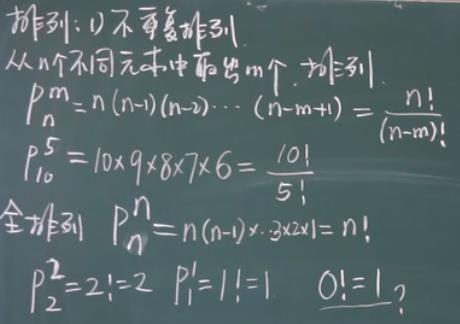 排列: 1) 不重复排列
从n个不同元素中取出m个, 排列.
P_n^m = n(n-1)(n-2)⋯(n-m+1) = n!/(n-m)!
P_10^5 = 10×9×8×7×6 = 10!/5!
全排列 P_n^n = n(n-1)×⋯3×2×1 = n!
P_2^2 = 2! = 2 P_1^1 = 1! = 1. 0! = 1?